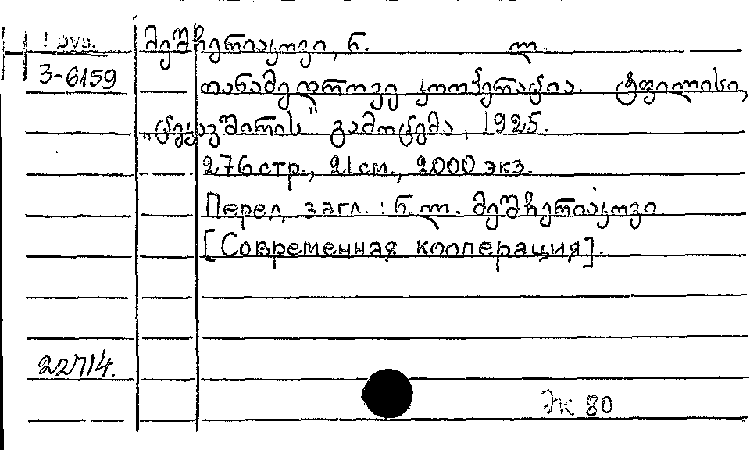 მეშჩერიაკოვი, ნ. ლ.
3-6159
თანამედროვე კოოპერაცია. ტფილისი,
„ცეკავშირის" გამოცემა, 1925.
276 стр., 21 см., 2000 экз.
Перед загл.: ნ. ლ. მეშჩერიაკოვი
[Современная кооперация].
22714.
Эк 80